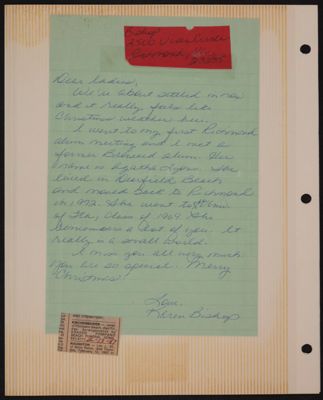 Bishop
Richmond, Va.
Dear Ladies,
We're about settled in now
and it really feels like
Christmas weather here.
I went to my first Richmond
alum meeting and I met a
former Broward alum. Her
name is Agatha Lyons. She
lived in Deerfield Beach
and moved back to Richmond
in 1972. She went to Univ
of Fla, Class of 1969. She
remembers a lot of you. It
really is a small world.
I miss you all very much
You are so special. Merry
Christmas!
Love,
Karen Bishop